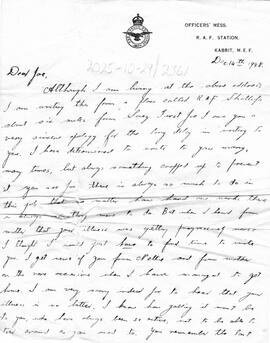 OFFICERS' MESS,
R.A.F. STATION,
KABRIT, M.E.F.
Dec. 14th 1948.
2025-10-29/2361
Dear Joe,
Although I am living at the above address
I am writing this from a place called R.A.F.
about six miles from Suez. First Joe I owe you a
very sincere apology for the long delay in writing to
you. I have determined to write to you many,
many times, but always something cropped up to prevent
it you see Joe there is always so much to do in
this job that no matter how hard one works there
is always something more to do. But when I heard from
mother that your illness was getting progressively worse
I thought I would just have to find time to write
you. I get news of you from and from mother
on the rare occasions when I have managed to get
home. I am very sorry indeed Joe to hear that your
illness is no better. I know how galling it must be
to you who have always been so active, not to be able to
around as you used to. You remember the last